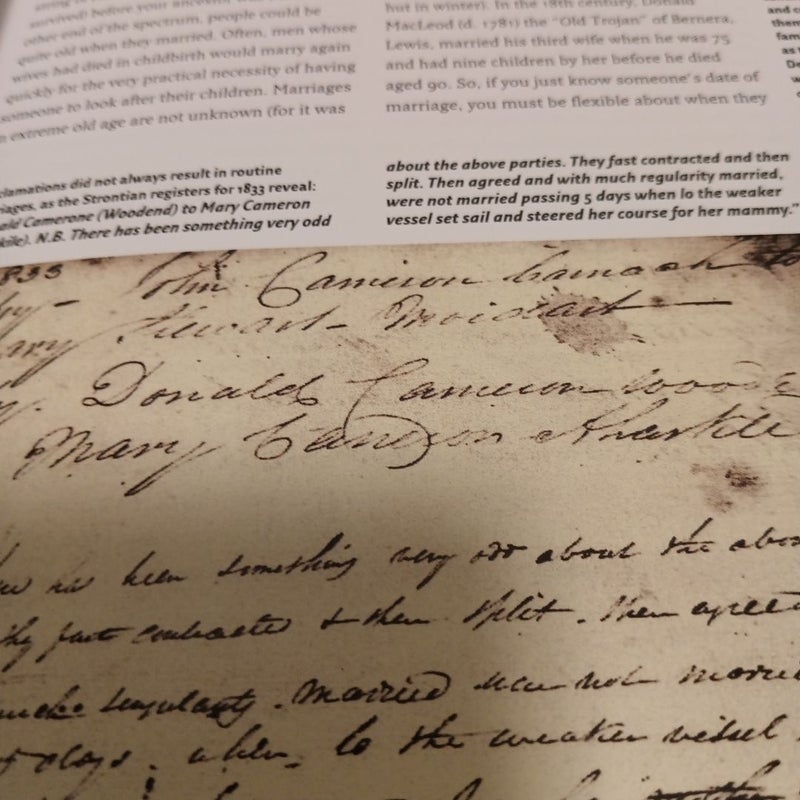 survived) before your ancestor
other end of the spectrum, people could be
quite old when they married. Often, men whose
wives had died in childbirth would marry again
quickly for the very practical necessity of having
someone to look after their children. Marriages
extreme old age are not unknown (for it was
but in winter). In the 18th century, Donald
MacLeod (d. 1781) the "Old Trojan" of Bernera,
Lewis, married his third wife when he was 75
and had nine children by her before he died
aged 90. So, if you just know someone's date of
marriage, you must be flexible about when they
and
them
fam
as
clamations did not always result in routine
iages, as the Strontian registers for 1833 reveal:
ald Camerone (Woodend) to Mary Cameron
kile). N.B. There has been something very odd
about the above parties. They fast contracted and then
split. Then agreed and with much regularity married,
were not married passing 5 days when lo the weaker
vessel set sail and steered her course for her mammy."
1833
John Cameron to
ary Stewart - Moidart
Donald Cameron Woode
Mary Cameron
has been something very odd about the abov
they fast contracted & then split. Then agreed
much regularity. Married were not married
5 days. when. lo the weaker vessel